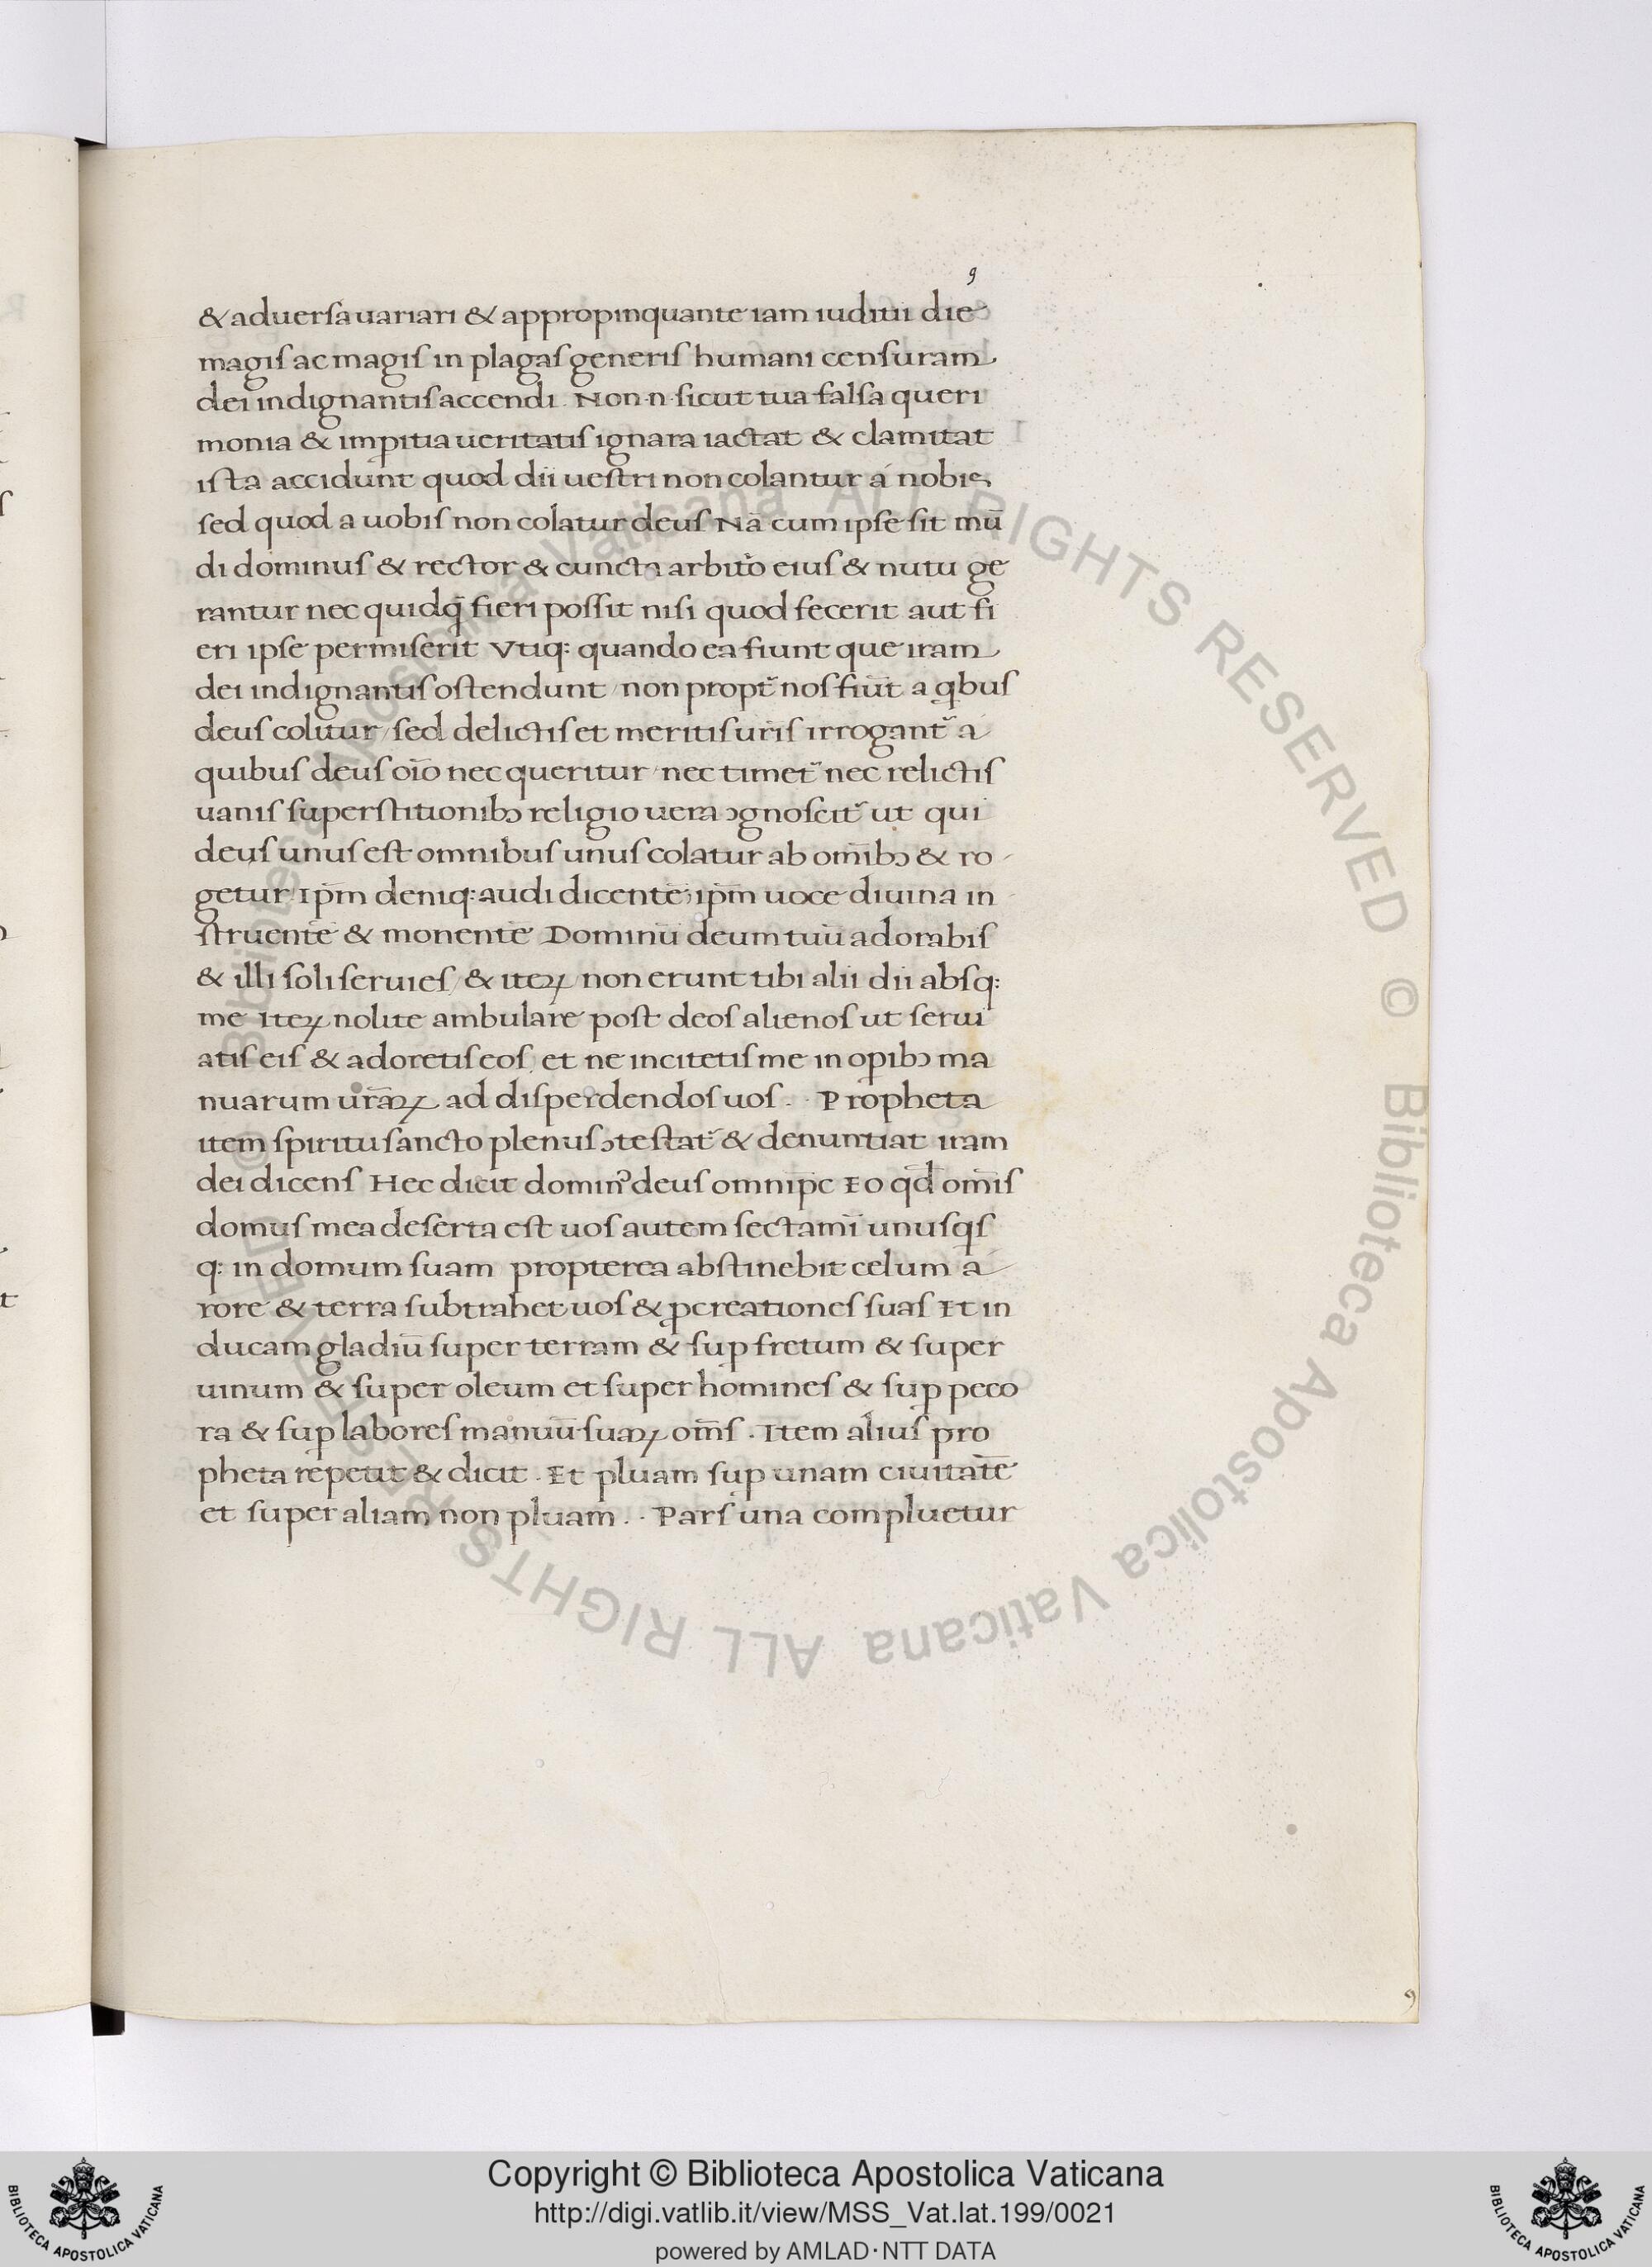 9
& aduerſa uariari & appropinquante iam iuditii die
magiſ ac magiſ in plagaſ generiſ humani cenſuram
dei indignantiſ accendi. Non .n. ſicut tua falſa queri
monia & imꝑitia ueritatiſ ignara iactat & clamitat
iſta accidunt quod dii ueſtri non colantur á nobis
ſed quod a uobiſ non colatur deuſ Nā cum ipſe ſit mū
di dominuſ & rector & cuncta arbit̓o eiuſ & nutu ge
rantur nec quidq̄ fieri poſſit niſi quod fecerit aut fi
eri ipſe permiſerit Vtiq: quando ea fiunt que iram
dei indignantiſ oſtendunt / non propt̓ noſ fiūt a qbuſ
deuſ colitur / ſed delictiſ et meritiſ ur̄iſ irrogant̓ a
quibuſ deuſ oīo nec queritur / nec timet̓ nec relictiſ
uaniſ ſuperſtitionibꝫ religio uera ꝯgnoſcit̓ ut qui
deuſ unuſ eſt omnibuſ unuſ colatur ab om̄ibꝫ & ro
getur Ip̄m deniq: audi dicentē ip̄m uoce diuina in
ſtruentē & monentē Dominū deum tuū adorabiſ
& illi ſoli ſeruieſ / & iteꝝ non erunt tibi alii dii abſq:
me Iteꝝ nolite ambulare poſt deoſ alienoſ ut ſerui
atiſ eiſ & adoretiſ eoſ, et ne incitetiſ me in oꝑibꝫ ma
nuarum ur̄aꝝ ad diſperdendoſ uoſ. Propheta
item ſpiritu ſancto plenuſ ꝯteſtat̓ & denuntiat iram
dei dicenſ Hec dicit dominꝰ deuſ omnip̄c Eo qd̄ om̄iſ
domuſ mea deſerta eſt uoſ autem ſectamī unuſqſ
q: in domum ſuam propterea abſtinebit celum a
rore & terra ſubtrahet uoſ & ꝓcreationeſ ſuaſ Et in
ducam gladiū ſuper terram & ſuꝑ fretum & ſuper
uinum & ſuper oleum et ſuper homineſ & ſuꝑ peco
ra & ſuꝑ laboreſ manuū ſuaꝝ om̄ſ . Item aliuſ pro
pheta repetit & dicit . Et pluam ſuꝑ unam ciuitatē
et ſuper aliam non pluam . . Parſ una compluetur
9
Copyright © Biblioteca Apostolica Vaticana
http://digi.vatlib.it/view/MSS_Vat.lat.199/0021
powered by AMLAD·NTT DATA